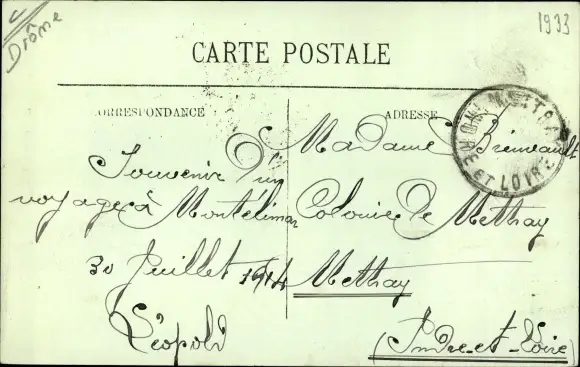 Drôme
1933
CARTE POSTALE
CORRESPONDANCE
ADRESSE
Souvenir d'un
voyage à Montélimar
30 Juillet 1914
Léopold
Madame
Colonie de Mettray
Mettray
(Indre-et-Loire)
METTRAY
INDRE ET LOIRE